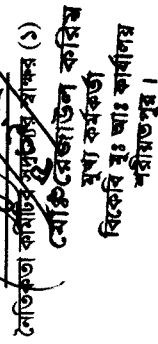 নৈতিকতা কমিটির সদস্যের স্বাক্ষর (১)
মোঃ রেজাউল করিম
মুখ্য কর্মকর্তা
বিকেবি মুঃ আঃ কার্যালয়
শরীয়তপুর।